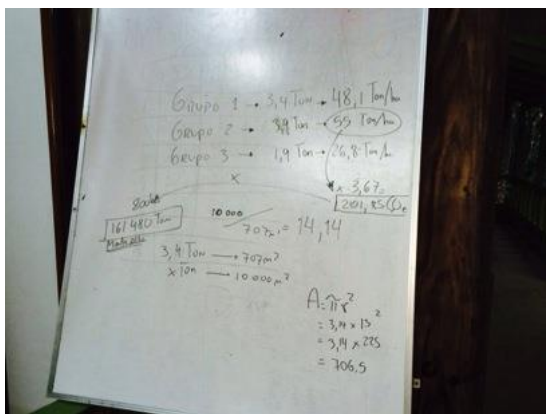 Grupo 1 → 3,4 Ton → 48,1 Ton/ha
Grupo 2 → 3,9 Ton → 55 Ton/ha
Grupo 3 → 1,9 Ton → 26,8 Ton/ha
x
x 3,67 =
201,85
800
161480 Ton
10 000
707 = 14,14
3,4 Ton → 707 m²
x Ton → 10 000 m²
A = πr²
= 3,14 x 15²
= 3,14 x 225
= 706,5